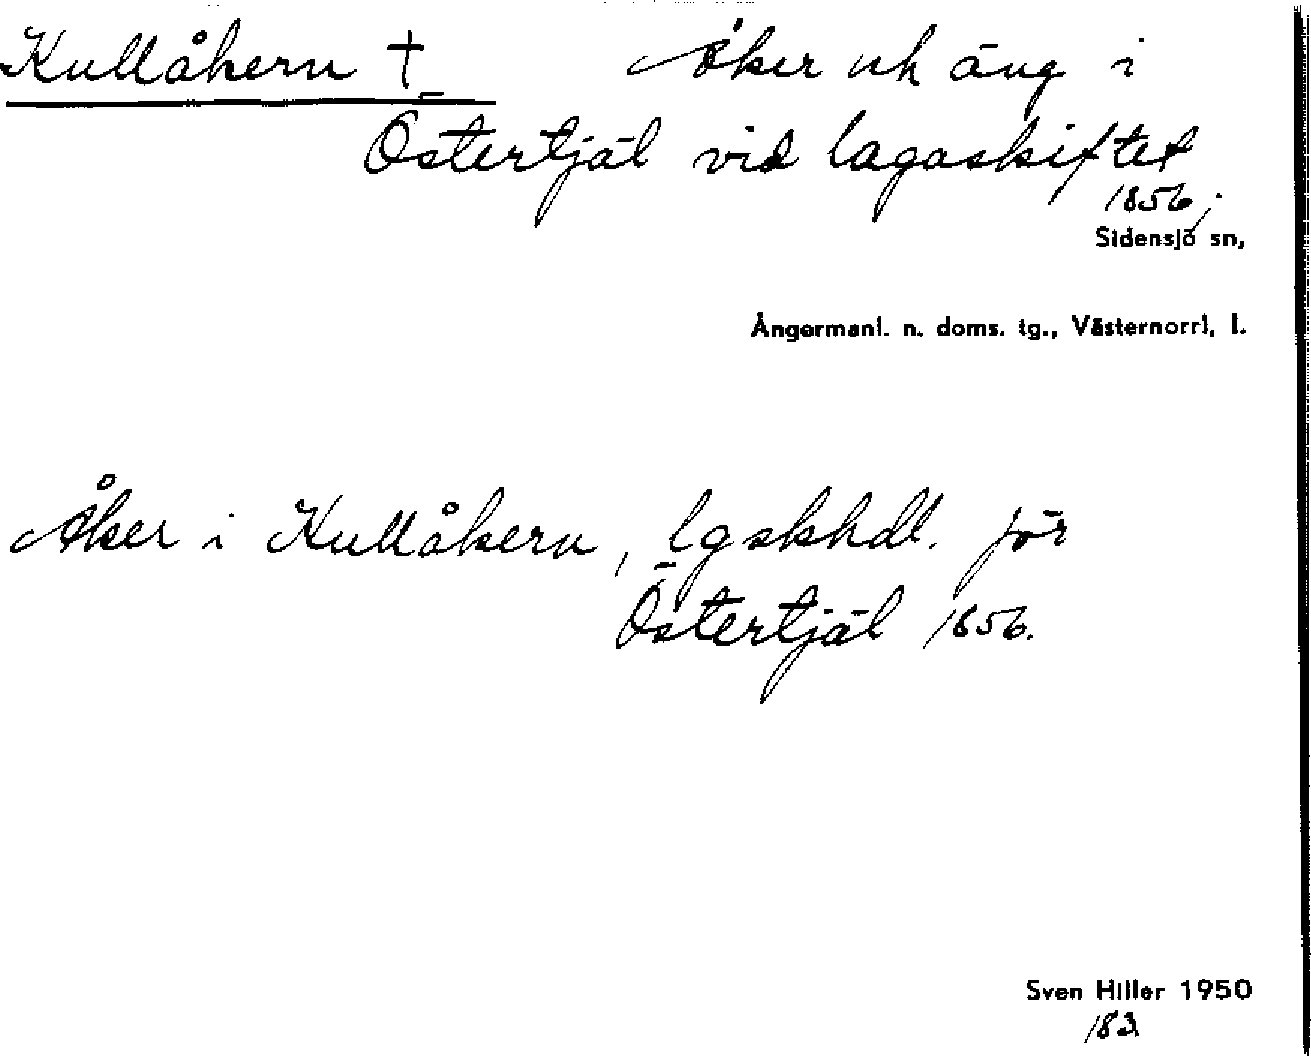 Kullåkern † Åker och äng i
Östertjäl vid lagaskiftet
1856.
Sidensjö sn,
Ångermanl. n. doms. tg., Västernorrl. l.
Åker i Kullåkern, lgskhdl. för
Östertjäl 1856.
Sven Hiller 1950
183